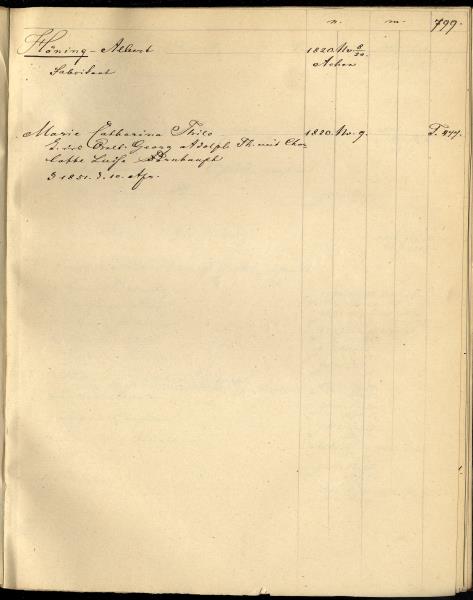 n. m. 799.
Höning - Albert 1820. Nov. 8/20.
Fabrikant Achen
Marie Catharina Thilo 1820. Nov. 9. T. 477.
T. des Georg Adolph Th. mit Char
lotte Luise Dornhaupt
1851. d. 10. Apr.